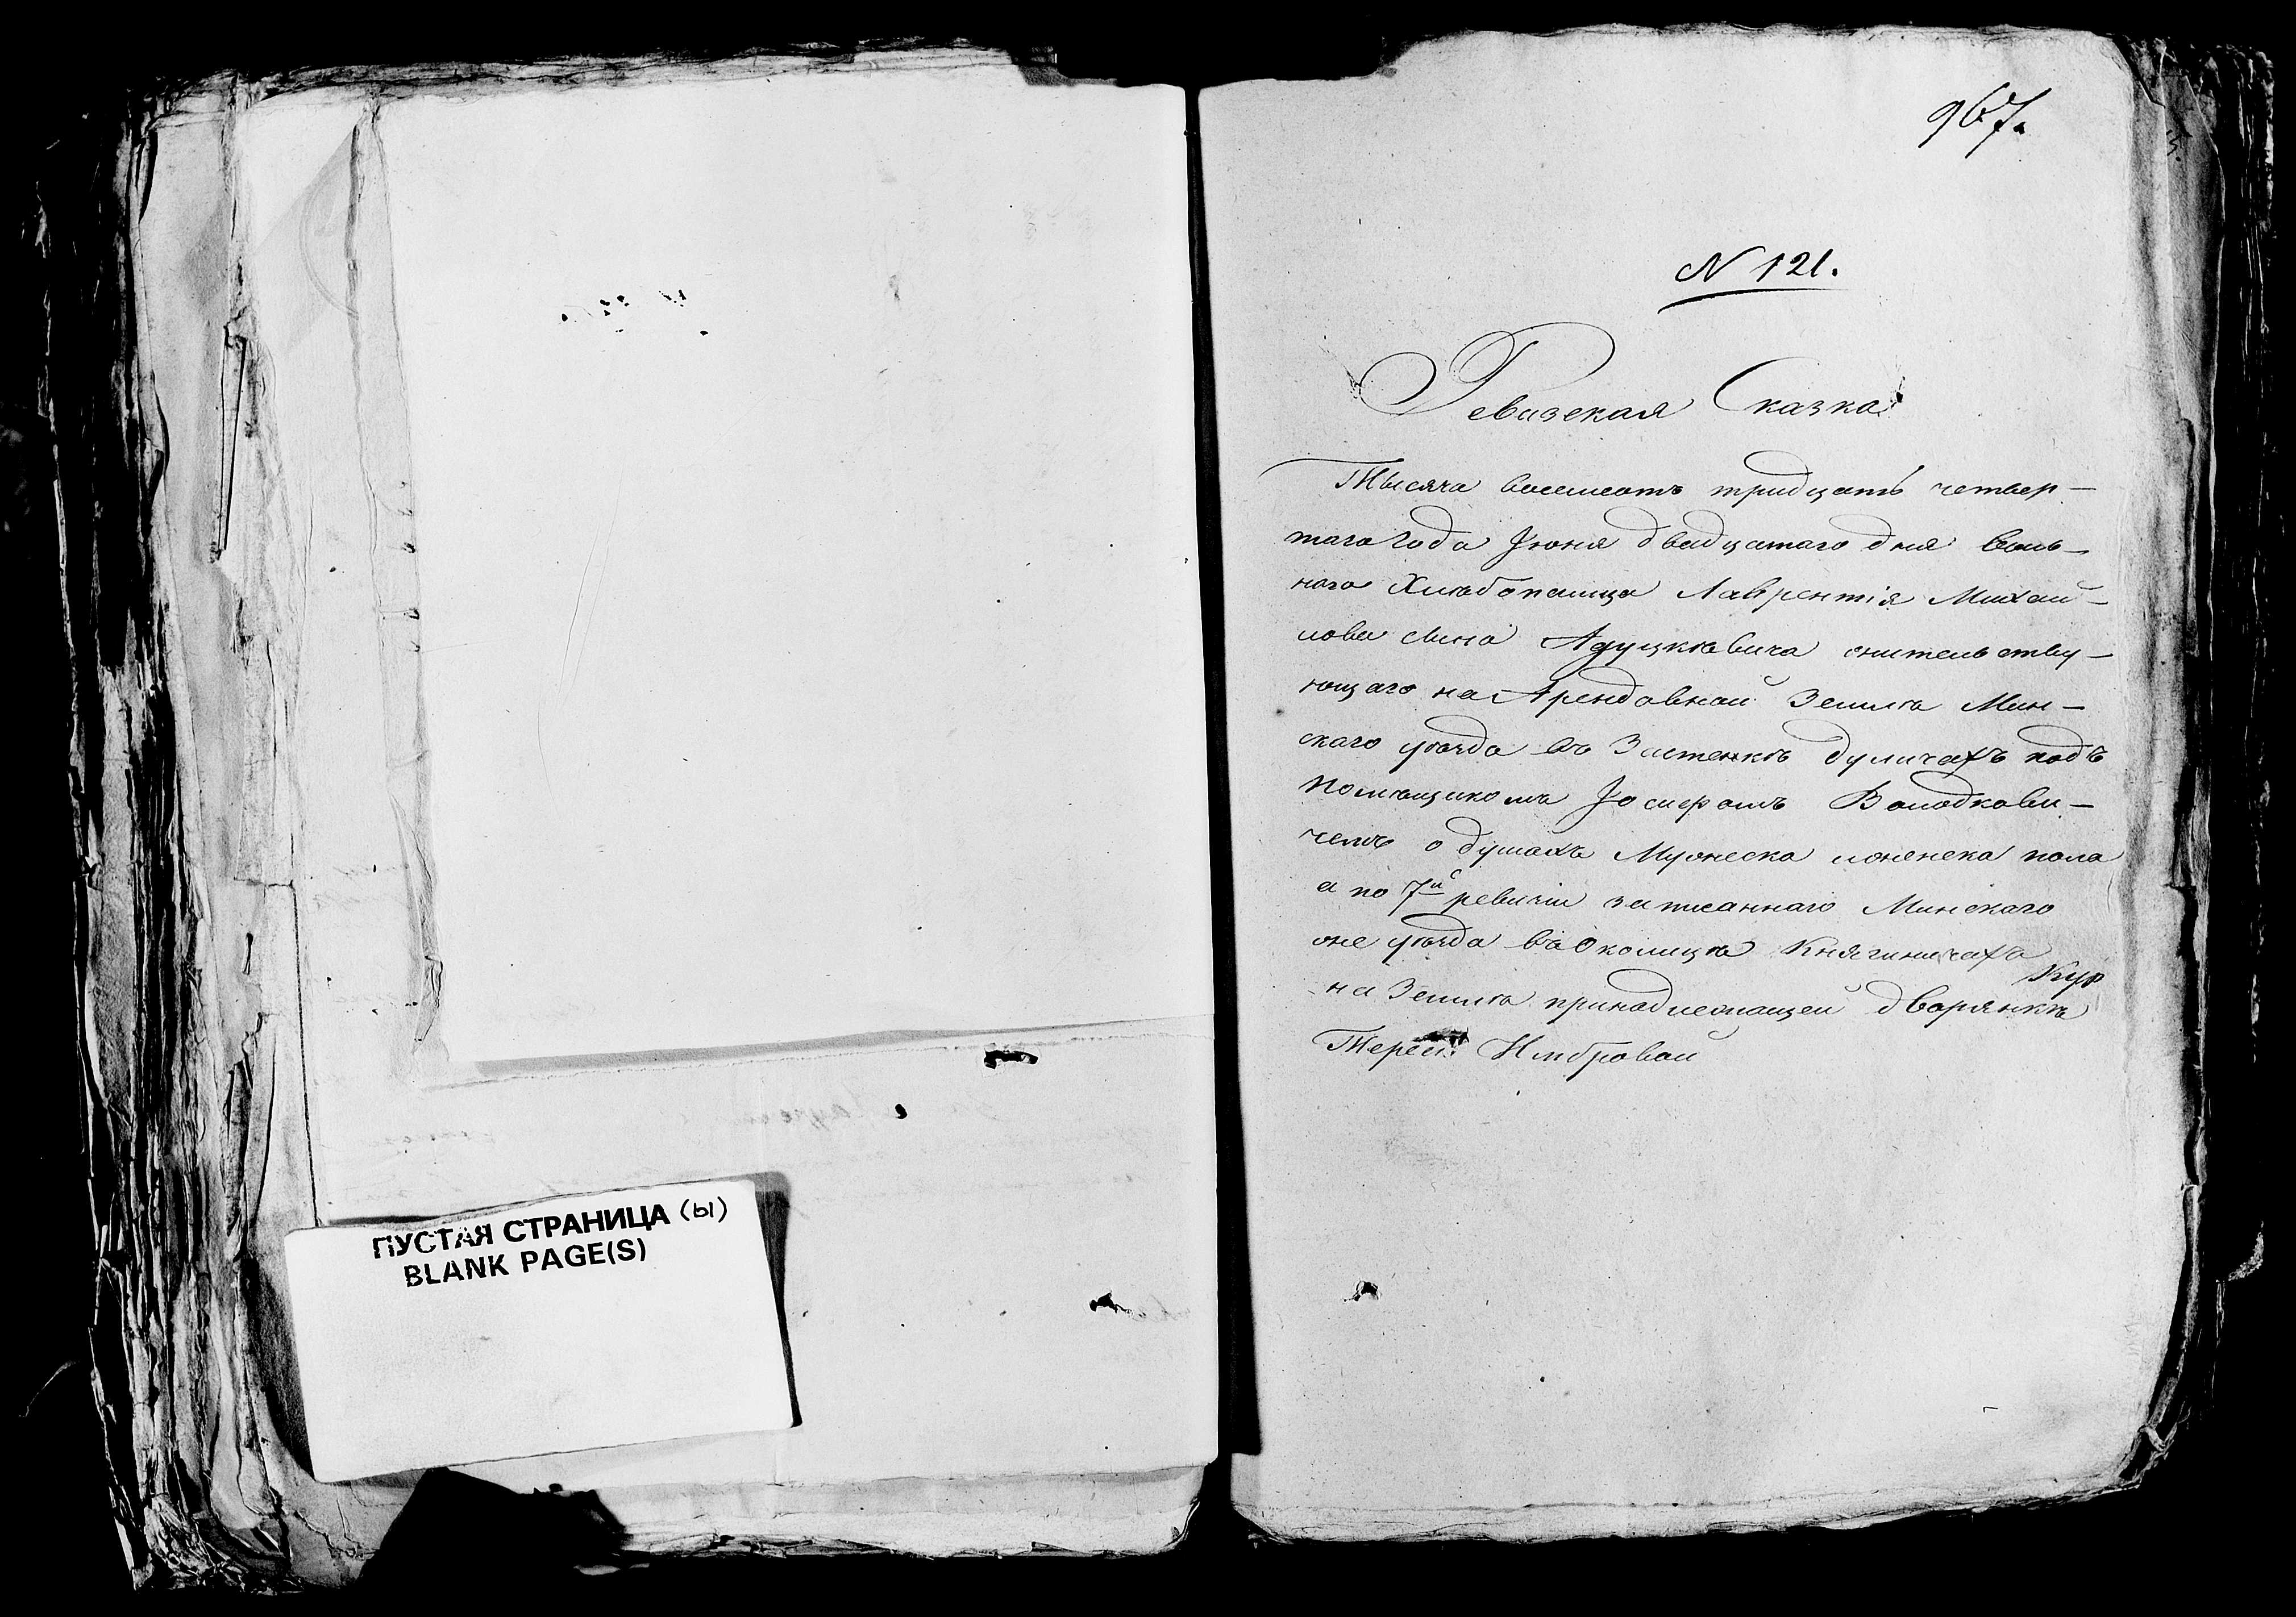 ПУСТАЯ СТРАНИЦА (ы)
BLANK PAGE(S)
967.
N 121.
Ревизская Сказка
Тысяча восемсотъ тридцать четвер-
таго года Июня двадцатаго дня воль-
наго Хлѣбопашца Лаврентія Михай-
лова сына Адуцкѣвича жительству-
ющаго на Арендовной Землѣ Мин-
скаго уѣзда въ Застенкѣ Дуличахъ подъ
помѣщикомъ Іосифомъ Володкови-
чемъ о душахъ Мужеска иженска пола
а по 7й ревизіи записаннаго Минскаго
же уѣзда въ Околицѣ Княгиничахъ
на Землѣ принадлежащей дворянкѣ
Тересѣ